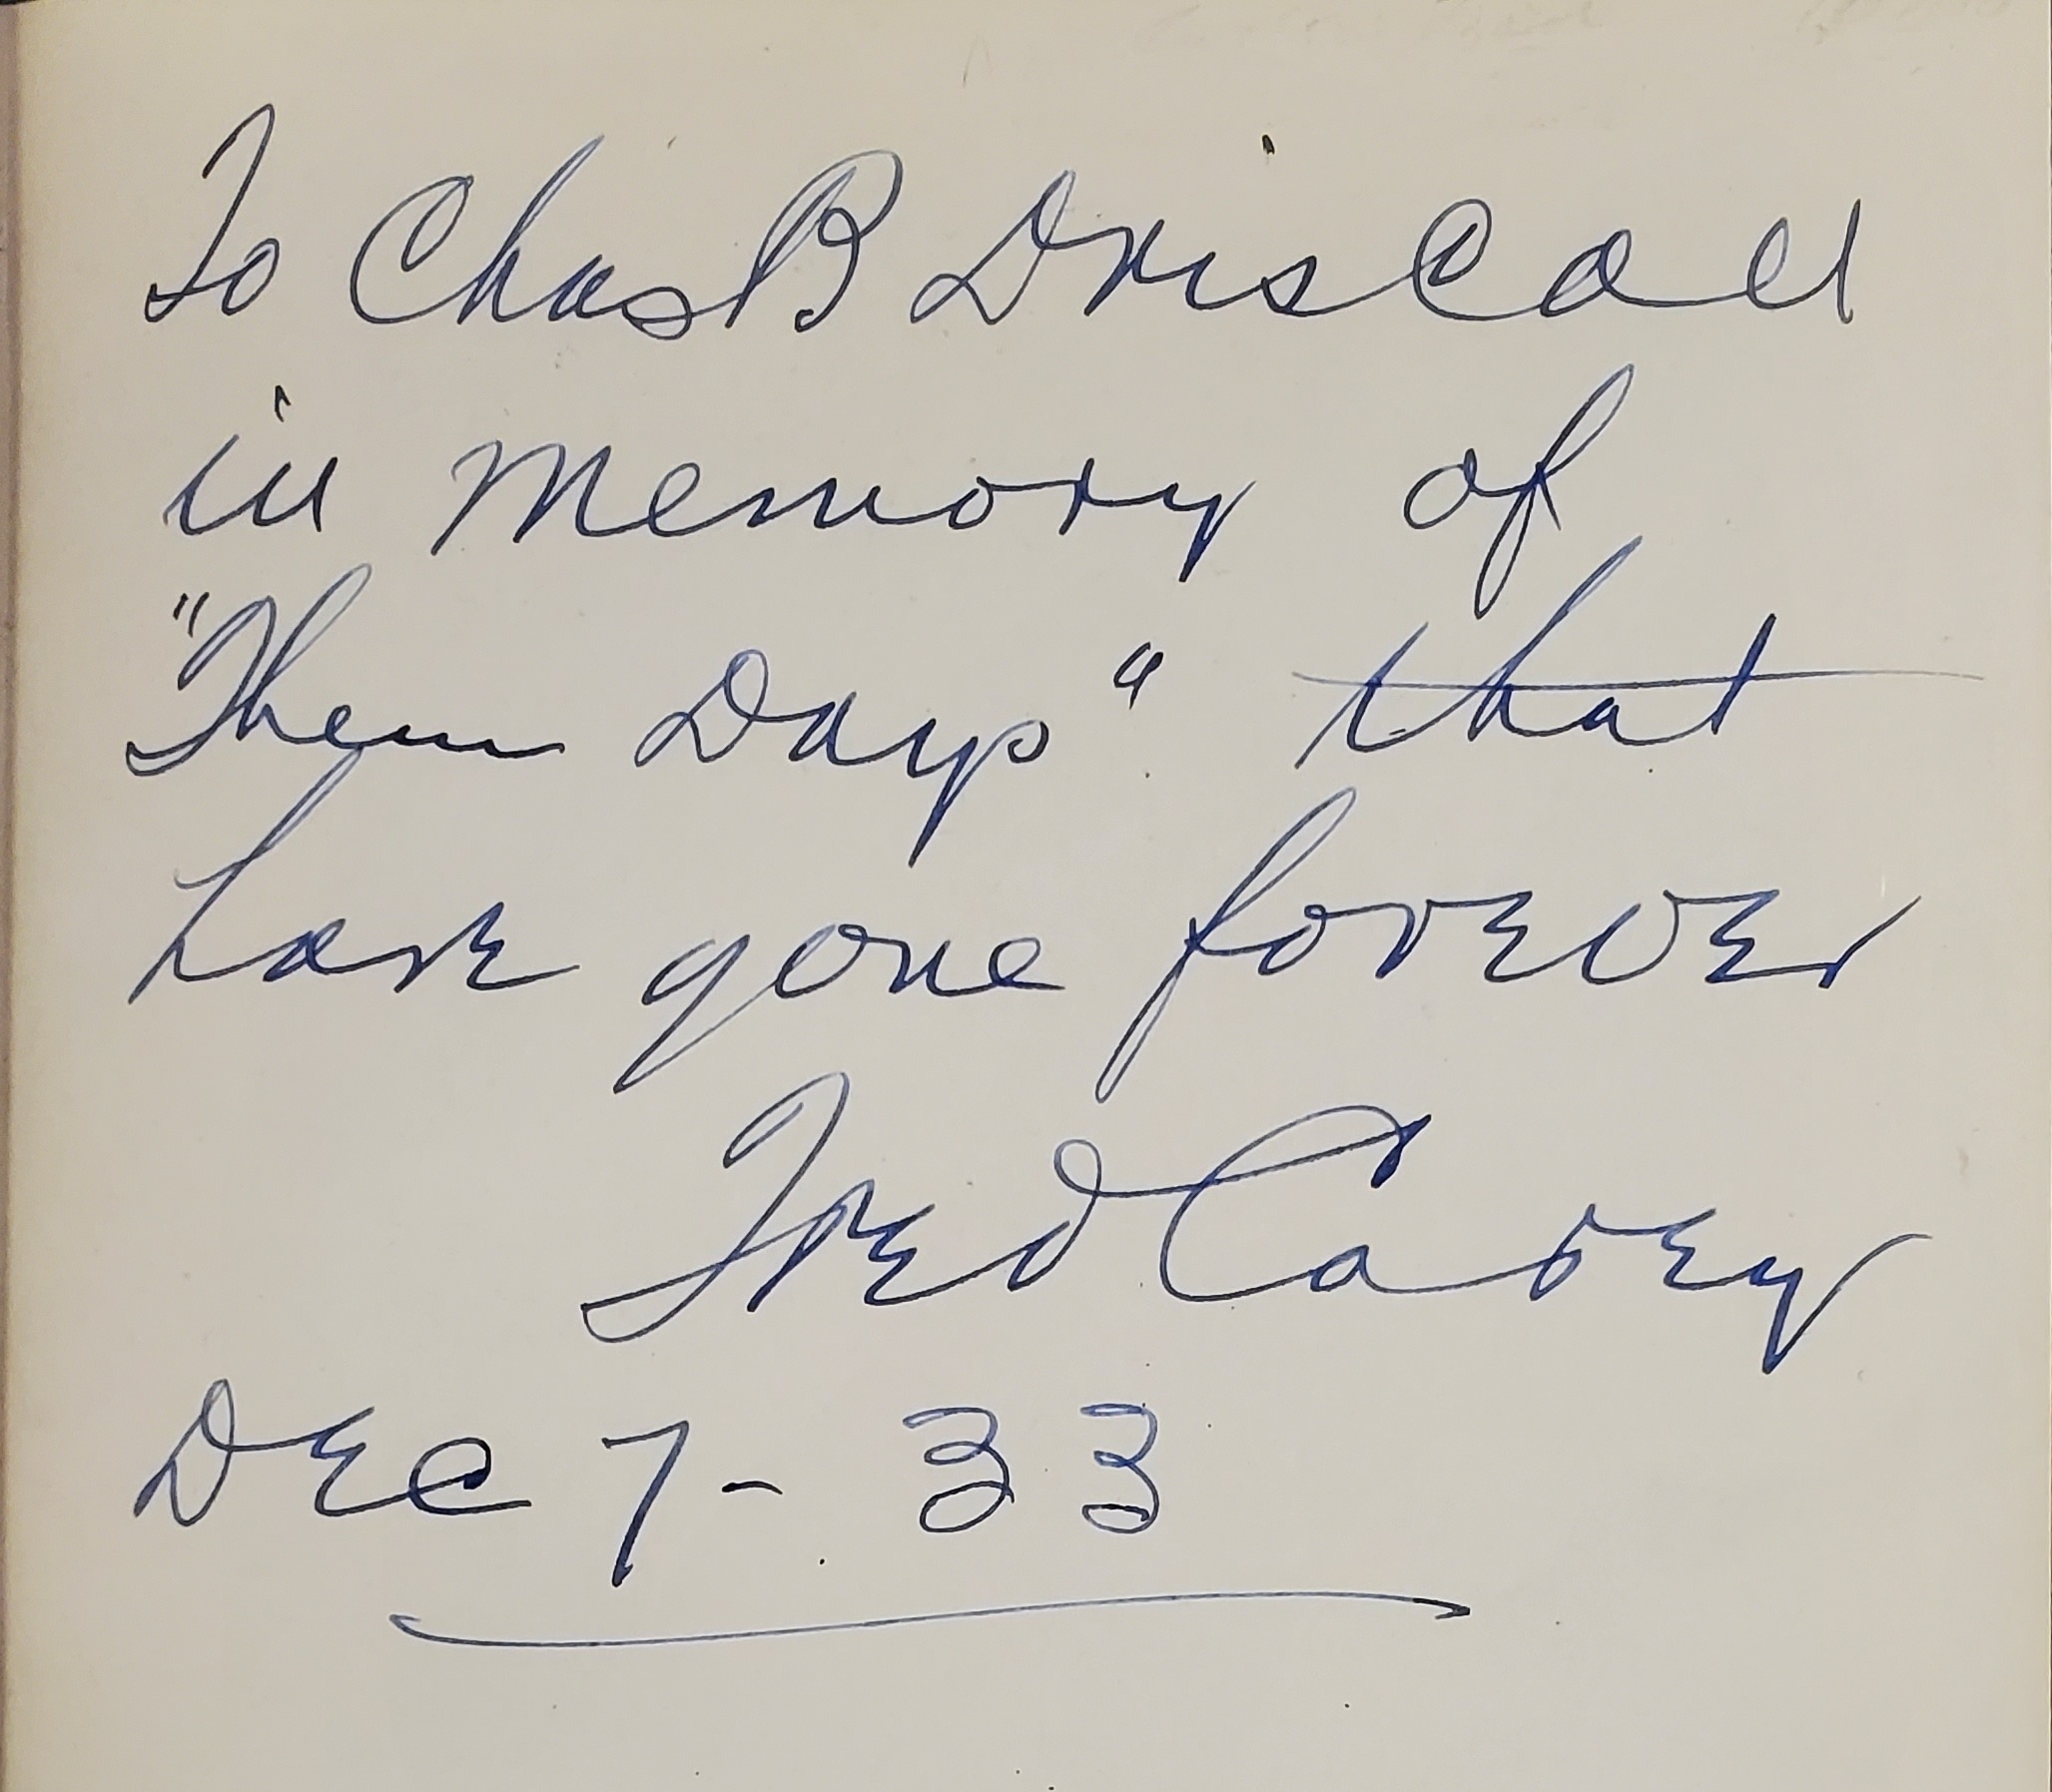 To Chas B Driscoll
in memory of
"Them Days" that
have gone forever
Fred Carey
Dec 7 - 33